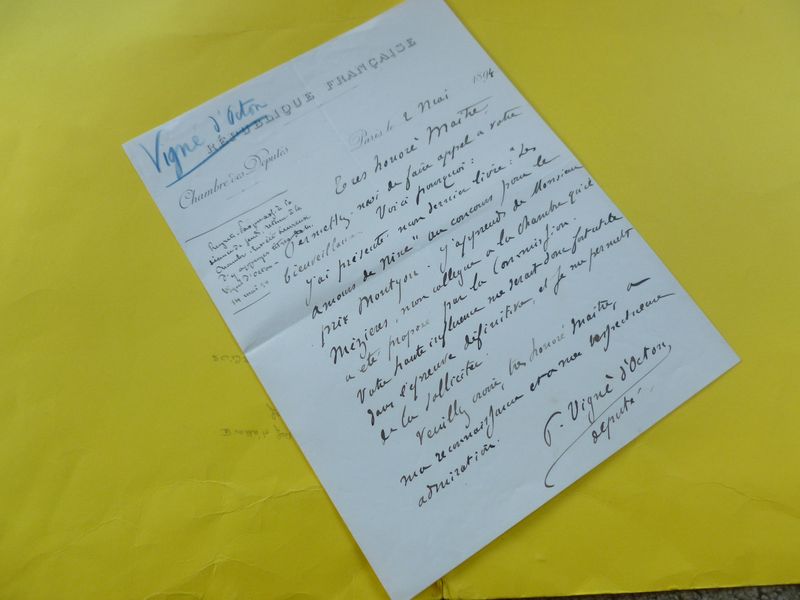 Vigné d'Octon
RÉPUBLIQUE FRANÇAISE
Chambre des Députés
Paris, le 2 Mai 1894
Très honoré Maître,
Permettez-moi de faire appel à votre
bienveillance. Voici pourquoi :
j'ai présenté mon dernier livre : "Les
amours de Nine" au concours pour le
prix Montyon. J'apprends de Monsieur
Mézières, mon collègue à la Chambre qu'il
a été proposé par la Commission.
Votre haute influence me serait donc fort utile
dans l'épreuve définitive, et je me permets
de la solliciter.
Veuillez croire, très honoré Maître, à
ma reconnaissance et à ma respectueuse
admiration.
P. Vigné d'Octon,
député.
séance de jeudi, retenu à la
Chambre
Vigné d'Octon
mai